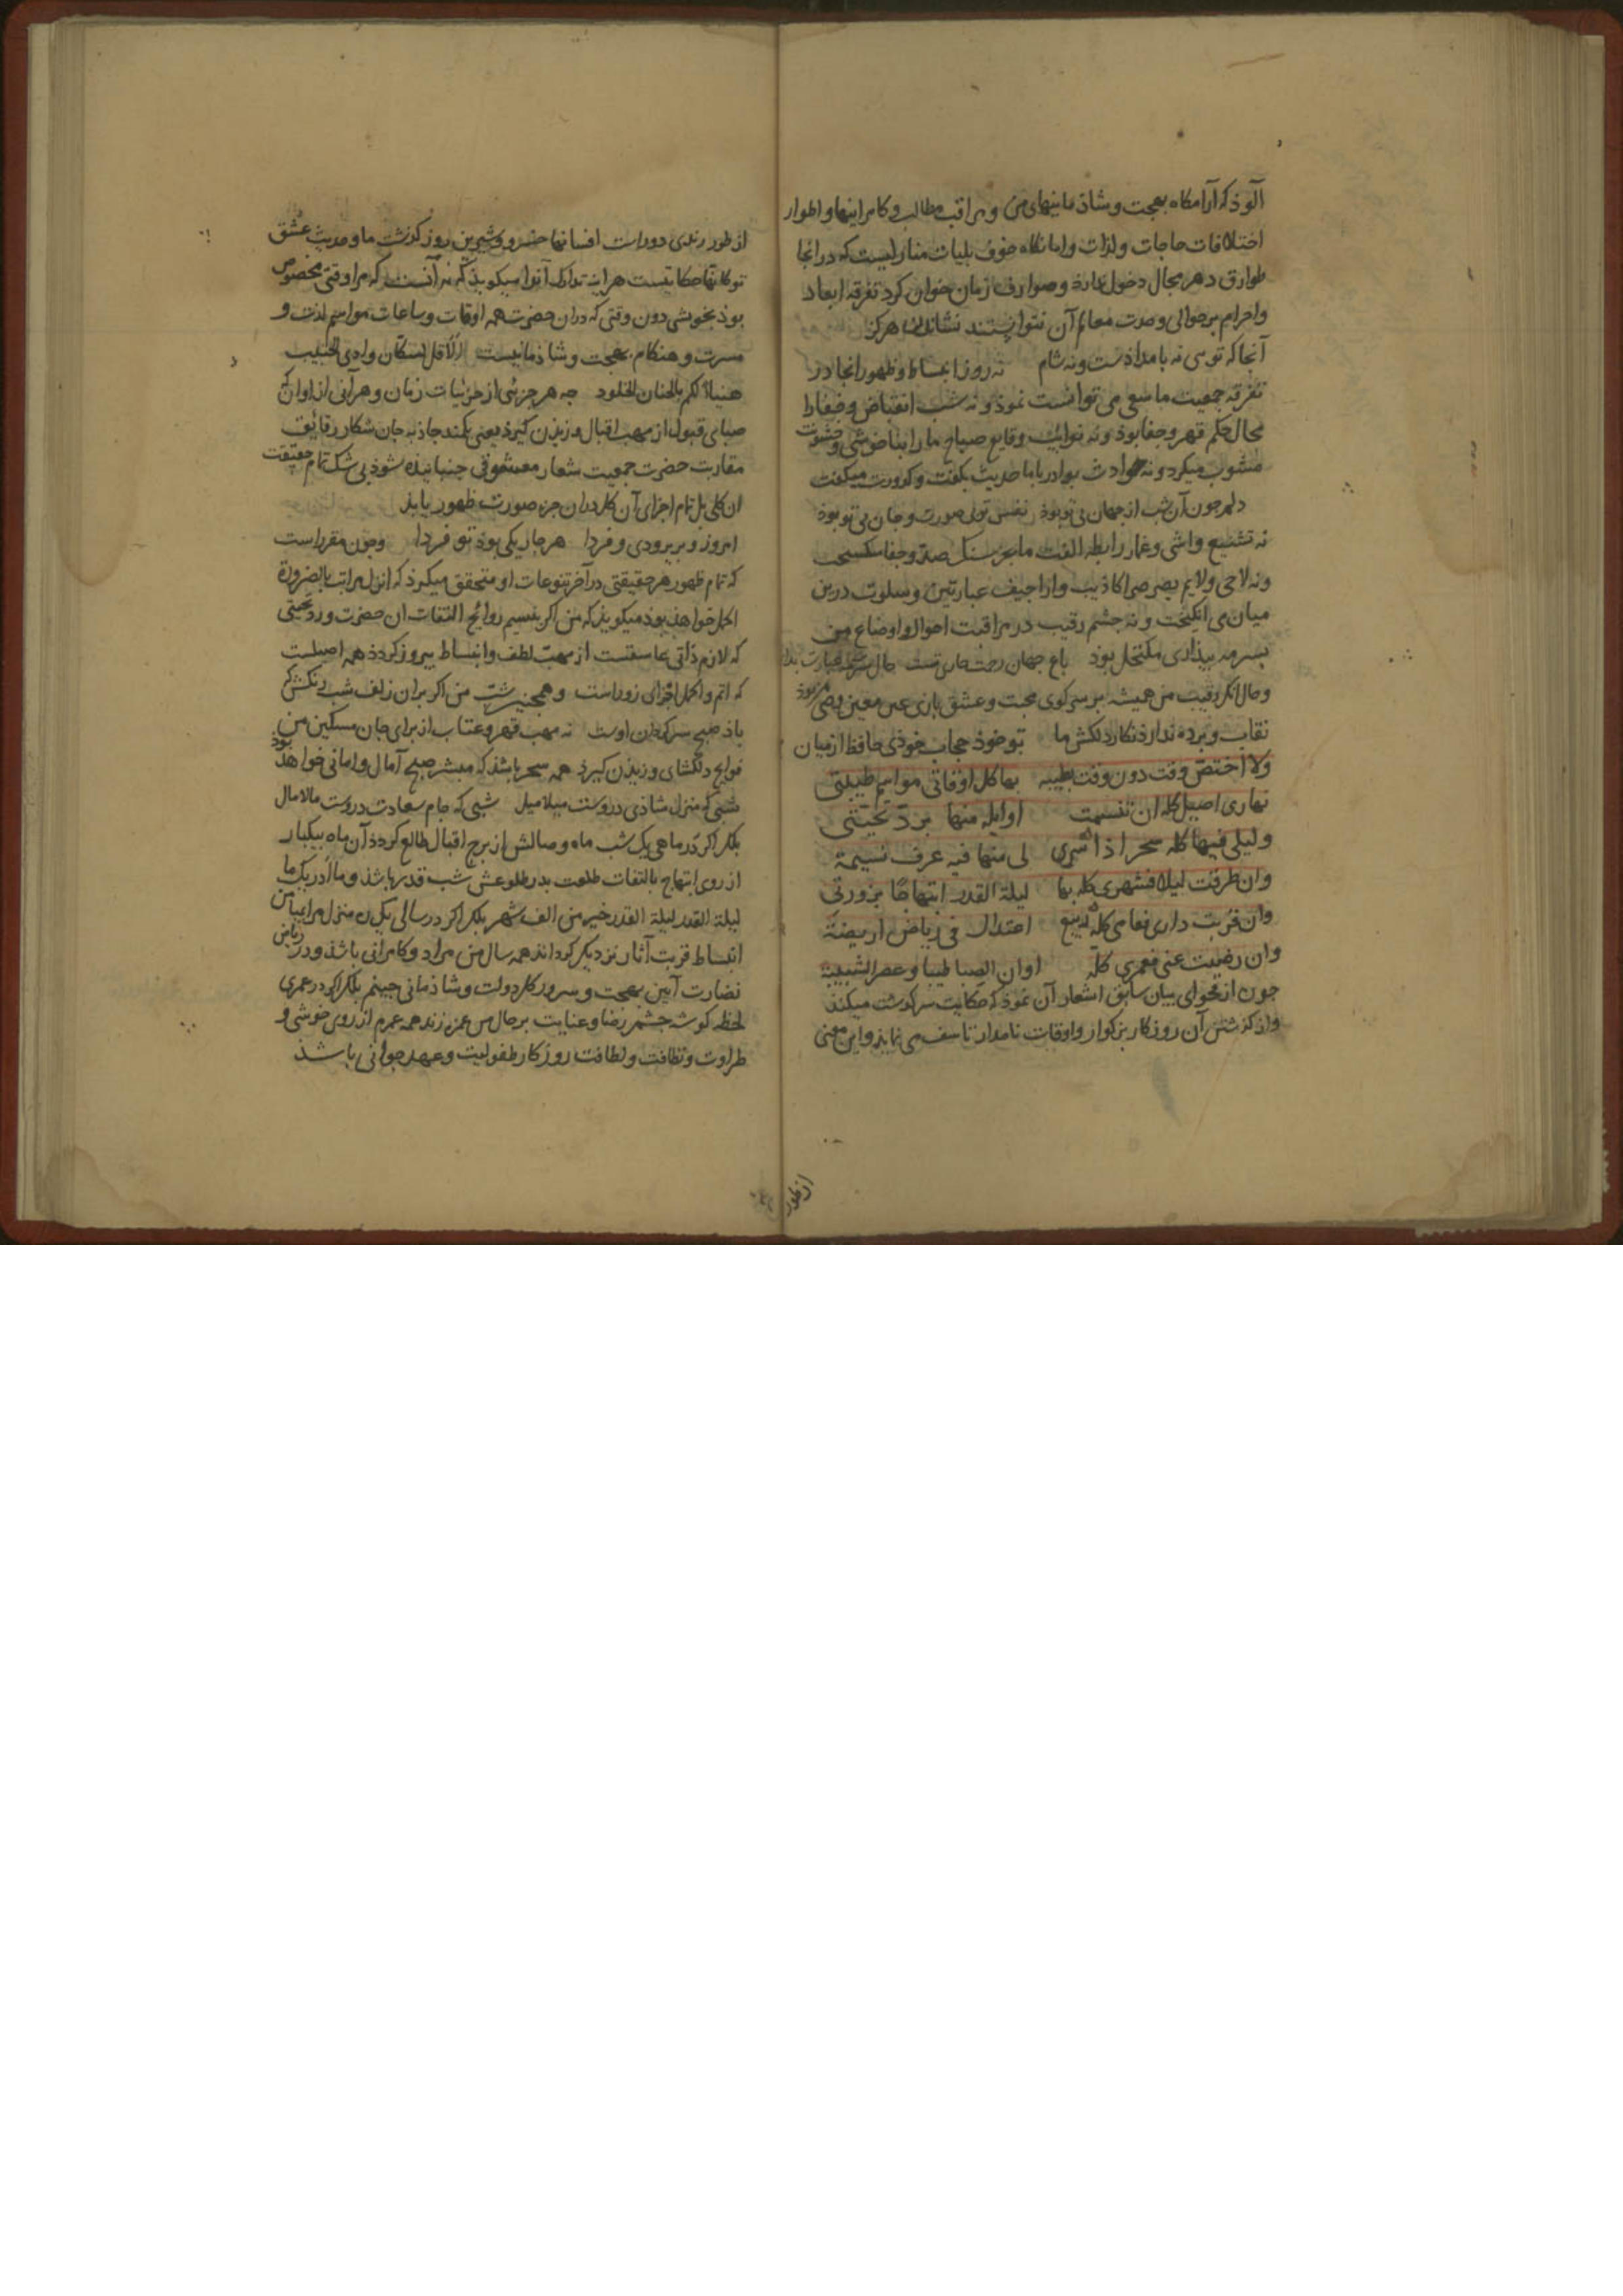 آلوذ که آرامکاه بهجت و شاذمانیهای من و مراقب مطالب و کامرانیها و اطوار
اختلافات حاجات و لذات و امانکاه خوف بلیات منازلیست که در انجا
طوارق دهر مجال دخول ندارذ و صوارف زمان خوان کرد تفرقه ابعاد
و اجرام بر حوالی وحدت معالم آن نتوانستند نشاندن هرکز
آنجا که توسی نه بامدادست و نه شام نه روز انبساط و ظهور انجا در
تفرقه جمعیت ما سعی می توانست نموذ و نه شب انقباض و خفا را
مجال حکم قهر و جفا بوذ و نه نوایب وقایع صباح ما را بناخوشی و خشونت
مشوب میکرد و نه حوادث بوادر با ما حدیث کلفت و کدورت میکفت
دلم جون آن شب از جهان بی تو بوذ نفس توئی صورت و جان بی تو بوذ
نه تشنیع واشی و غماز رابطه الفت ما بجز سنک صد و جفا میکسیخت
و نه لاحی و لایم بصرصر اکاذیب و اراجیف عبار تبین و سلوت درین
میان می انکیخت و نه جشم رقیب در مراقبت احوال و اوضاع من
بسرمه بیذاری مکتحل بوذ باغ جهان
و حال انکه رقیب من همیشه بر سر کوی محبت و عشق بازی عین معین و
نقاب و برده ندارذ نکار دلکش ما تو خوذ حجاب خوذی حافظ از میان
ولا اختص وقت دون وقت بطیبه بها کل اوقاتی مواسم طیبتی
نهاری اصیل کله ان تنسمت اوایله منها برد تحیتی
ولیلی فیها کله سحر اذا سری لی منها فیه عرف نسیمة
وان طرقت لیلا فشهری کله بها لیلة القدر ابتهاجا بزورتی
وان قربت داری فعامی کله ربیع اعتدال فی ریاض اریضة
وان رضیت عنی فعمری کله اوان الصبا طیبا وعصر الشبیبة
جون از فحوای بیان سابق اشعار آن نموذ که حکایت سرکذشت میکند
و از کذشتن آن روزکار بزرکوار و اوقات نامدار تاسف می نماید و این معنی
از طور
از طور رندی دوراست افسانها خسرو و شیرین روز کذشت ما و حدیث عشق
تو کانها حکایتیست هراینه تدارک آنرا میکوید که نه آنست که مرا وقتی مخصوص
بوذ بخوشی دون وقتی که دران حضرت همه اوقات و ساعات مواسم لذت و
مسرت و هنکام بهجت و شاذمانیست الا قل لسکان وادی الحبیب
هنیاً لکم بالجنان الخلود جه هر جزئی از جزئیات زمان و هر آنی از اوان که
صبای قبول از مهب اقبال وزیذن کیرذ یعنی بکمند جاذبه جان شکار رقائق
مقاربت حضرت جمعیت شعار معشوقی جنبانیذه شوذ بی شک تمام حقیقت
ان کلی بل تمام اجزای آن کل دران جزء صورت ظهور یابذ
امروز و بریر و دی و فردا هر جار یکی بوذ تو فردا وجون مقرراست
که تمام ظهور هر حقیقتی در آخر تنوعات او متحقق میکرذ که انزل مراتب بالضرورة
اکمل خواهذ بوذ میکویذ که من اکر بنسیم روایح التفات ان حضرت و رد تحیتی
که لازم ذاتی عاشقست از مهب لطف و انبساط بیروز کردذ همه اصیلست
که اتم و اکمل اجزای روزاست و همجنین شب من اکر بران زلف شب رنکش که
باذ صبح سرکردان اوست نه مهب قهر و عتاب از برای جان مسکین من
فوایح دلکشای وزیذن کیرذ همه سحر باشذ که مبشر صبح آمال و امانی خواهذ بوذ
شبی که منزل شاذی دروست میلامیل شبی که جام سعادت دروست مالامال
بلکه اکر در ماهی یک شب ماه وصالش از برج اقبال طالع کردذ آن ماه بیکبار
از روی ابتهاج بالتفات طلعت بدر طلوعش شب قدرها باشذ وما ادریک ما
لیلة القدر لیلة القدر خیر من الف شهر بلکه اکر در سالی یک ره منزل مرا
انبساط قربت آثار نزدیکر کردانذ همه سال من مراد و کامرانی باشذ و در ریاض
نضارت آیین بهجت و سرور کل دولت و شاذمانی جینم بلکه اکر در عمری
لحظه کوشه جشم رضا و عنایت بر حال من غمزه زند همه عمرم از روی خوشی و
طراوت و نظافت و لطافت روزکار طفولیت و عهد جوانی باشذ